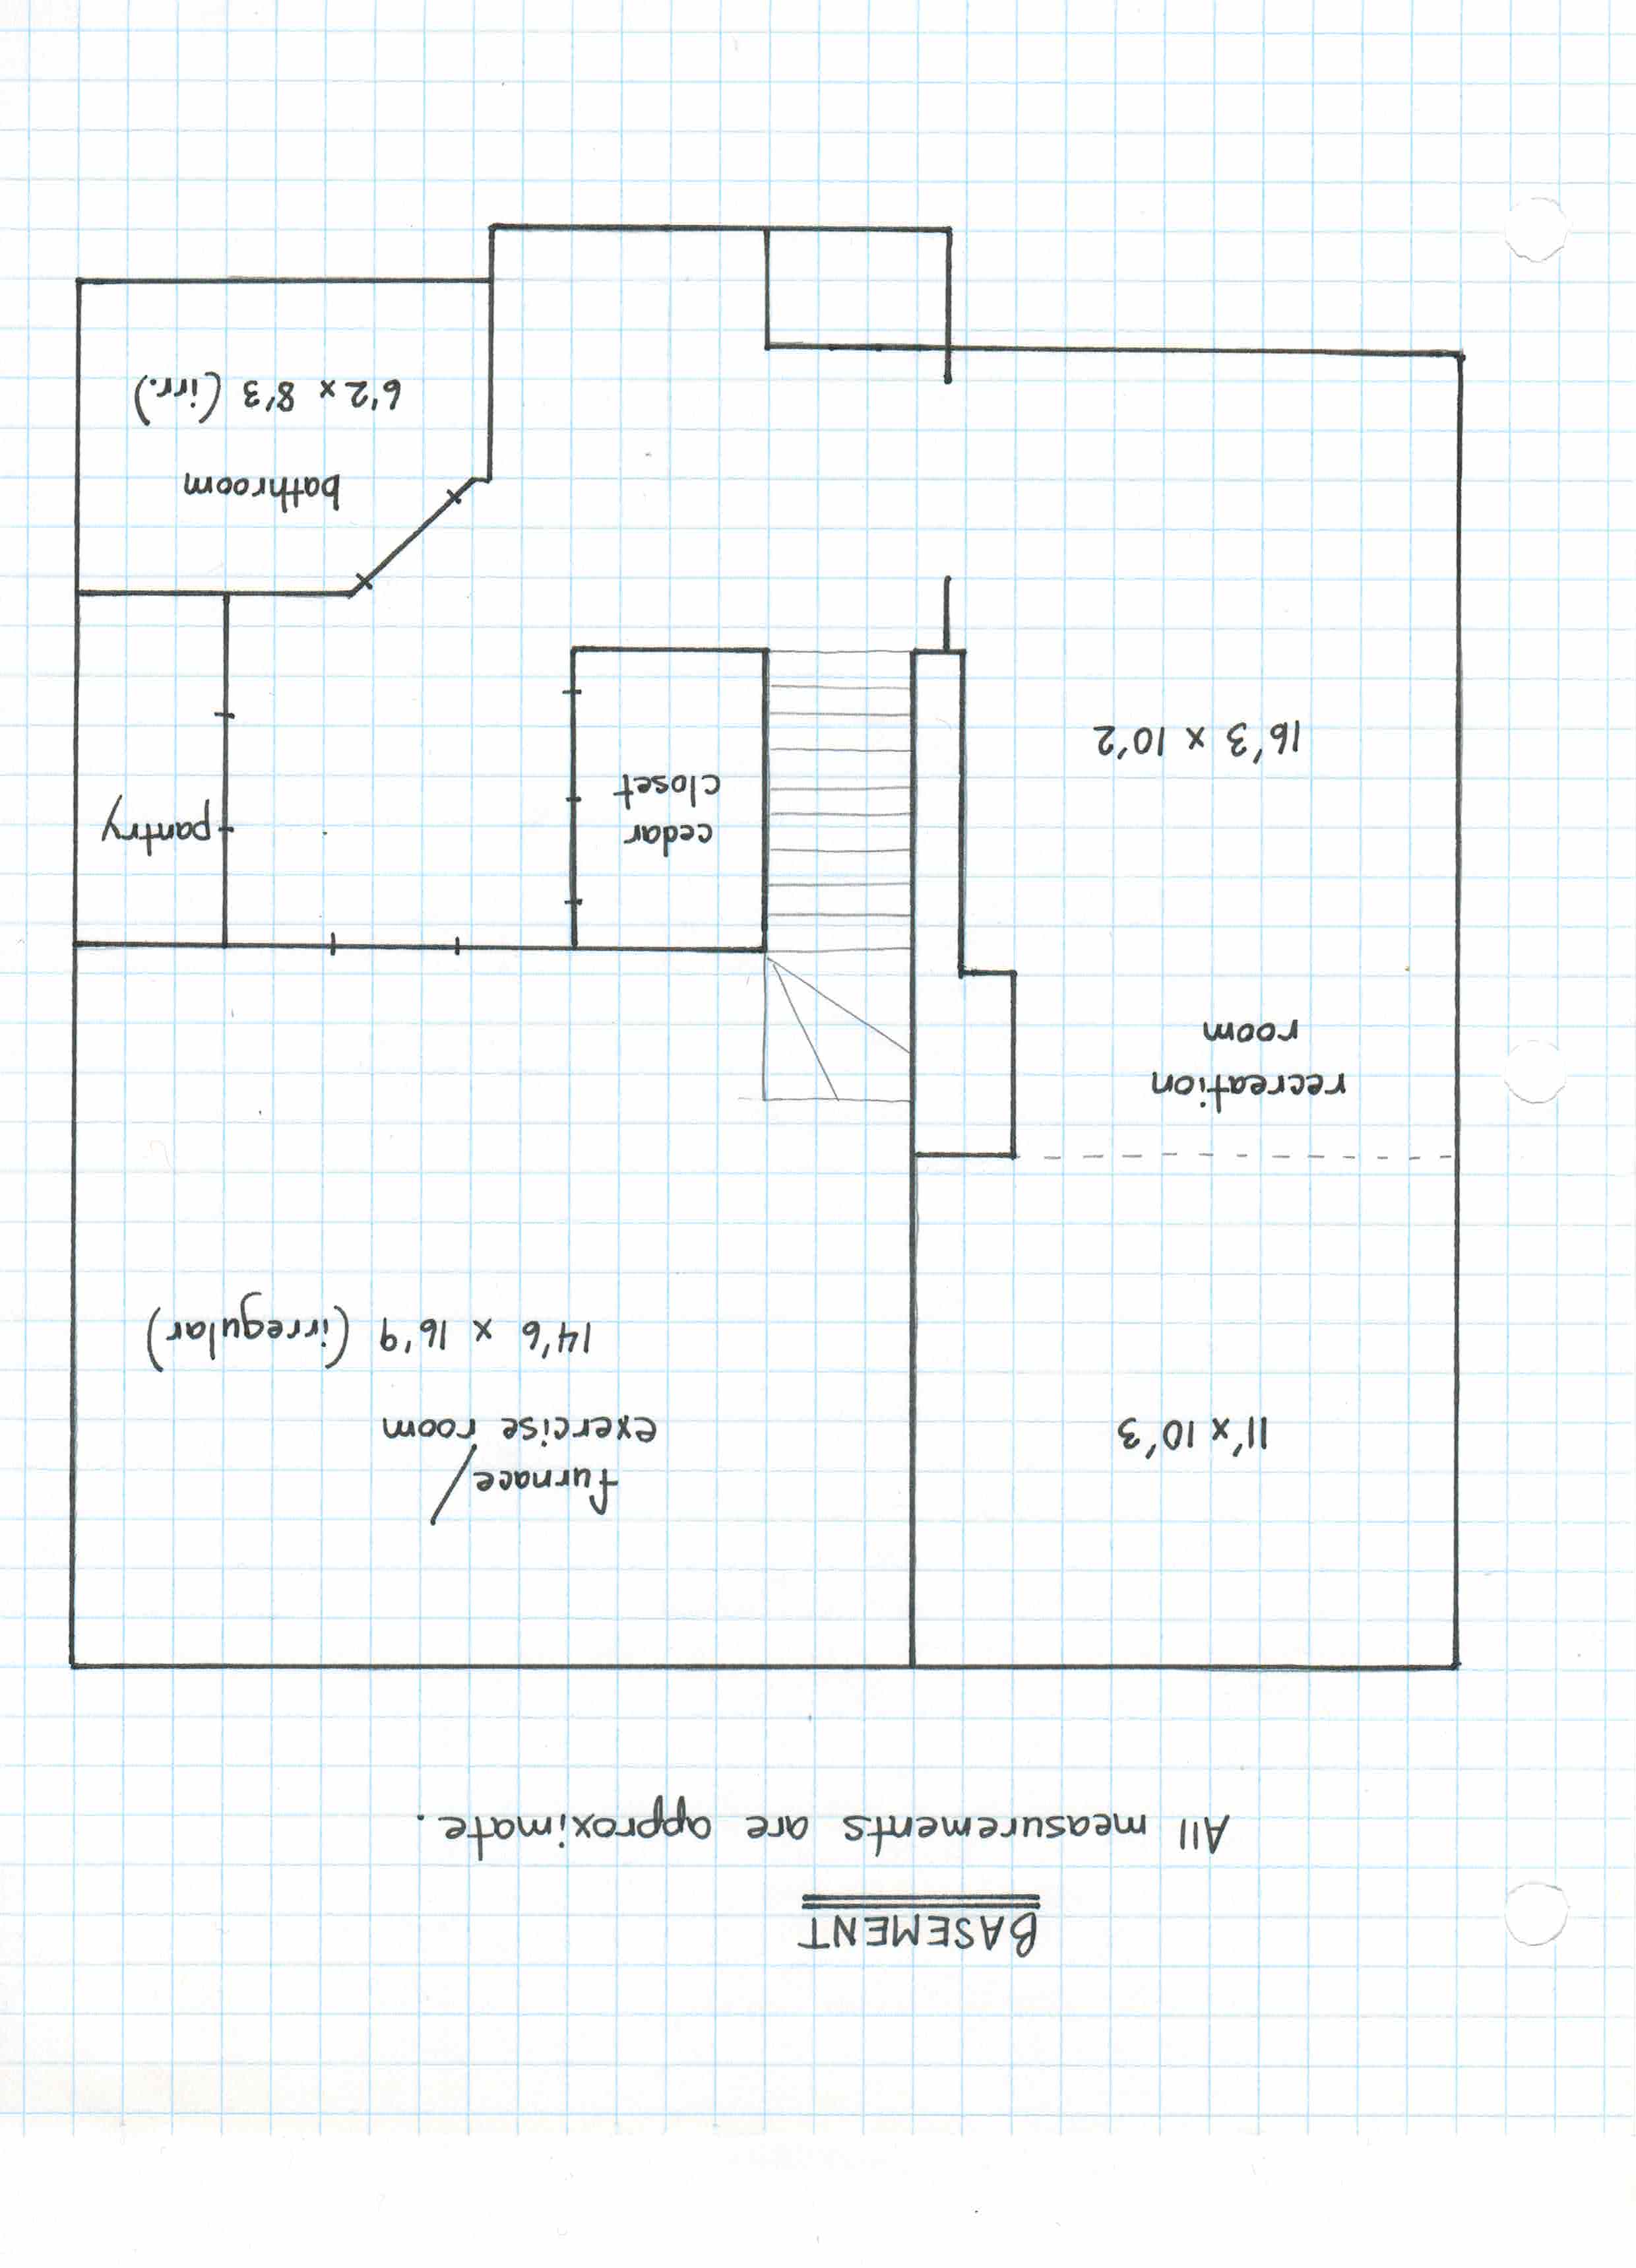 BASEMENT
All measurements are approximate.
11'x 10'3
furnace/
exercise room
14'6 x 16'9 (irregular)
recreation
room
16'3 x 10'2
cedar
closet
pantry
bathroom
6'2 x 8'3 (irr.)